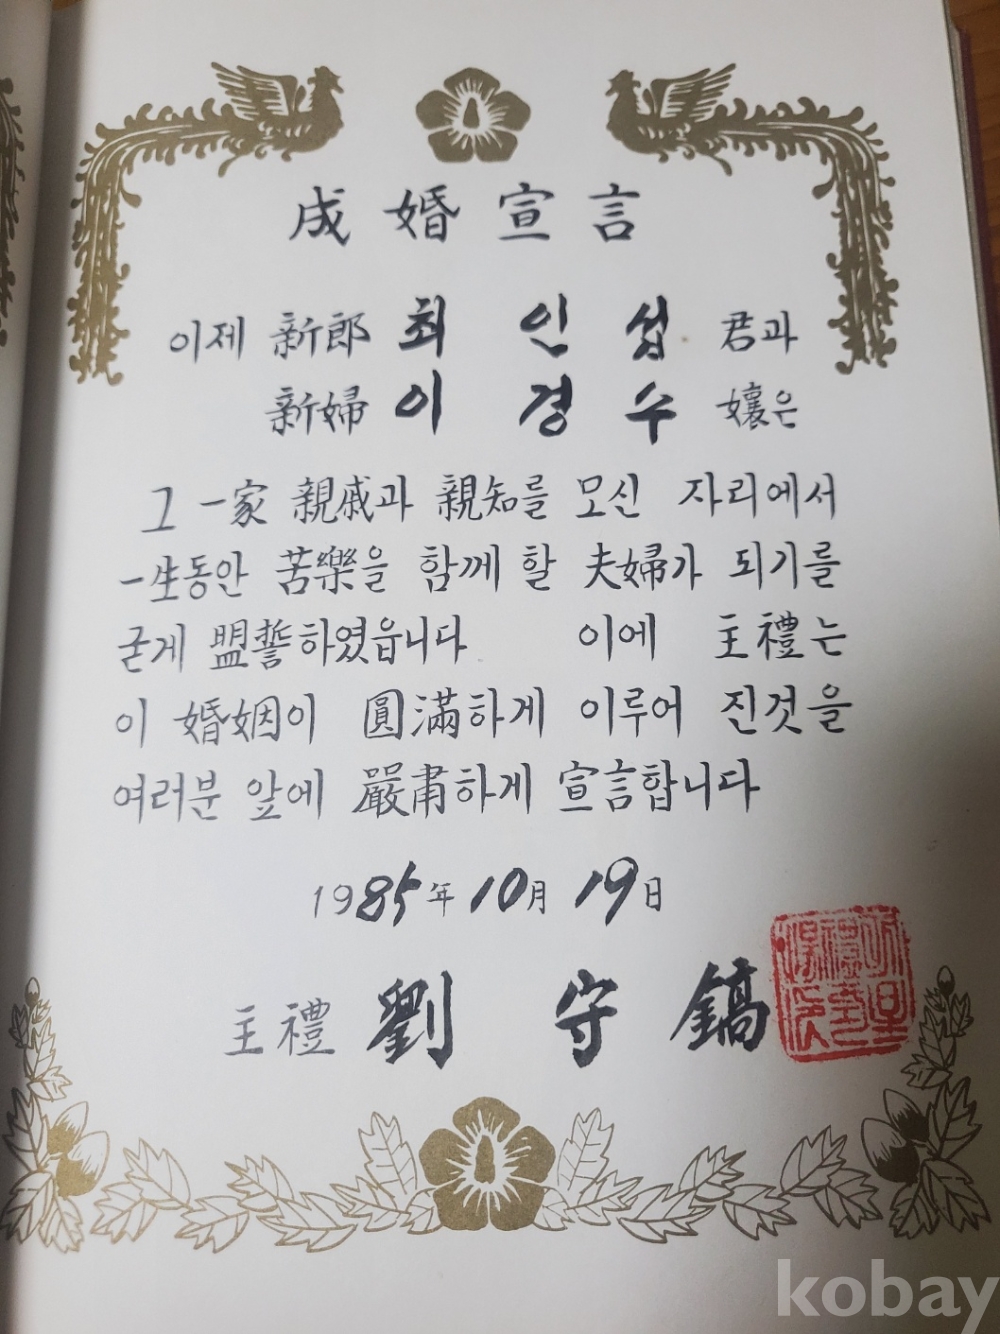 成婚宣言
이제 新郎 최 인 섭 君과
新婦 이 경 수 孃은
그 一家 親戚과 親知를 모신 자리에서
一生동안 苦樂을 함께 할 夫婦가 되기를
굳게 盟誓하였읍니다 이에 主禮는
이 婚姻이 圓滿하게 이루어 진것을
여러분 앞에 嚴肅하게 宣言합니다
1985年 10月 19日
主禮 劉 守 鎬
kobay